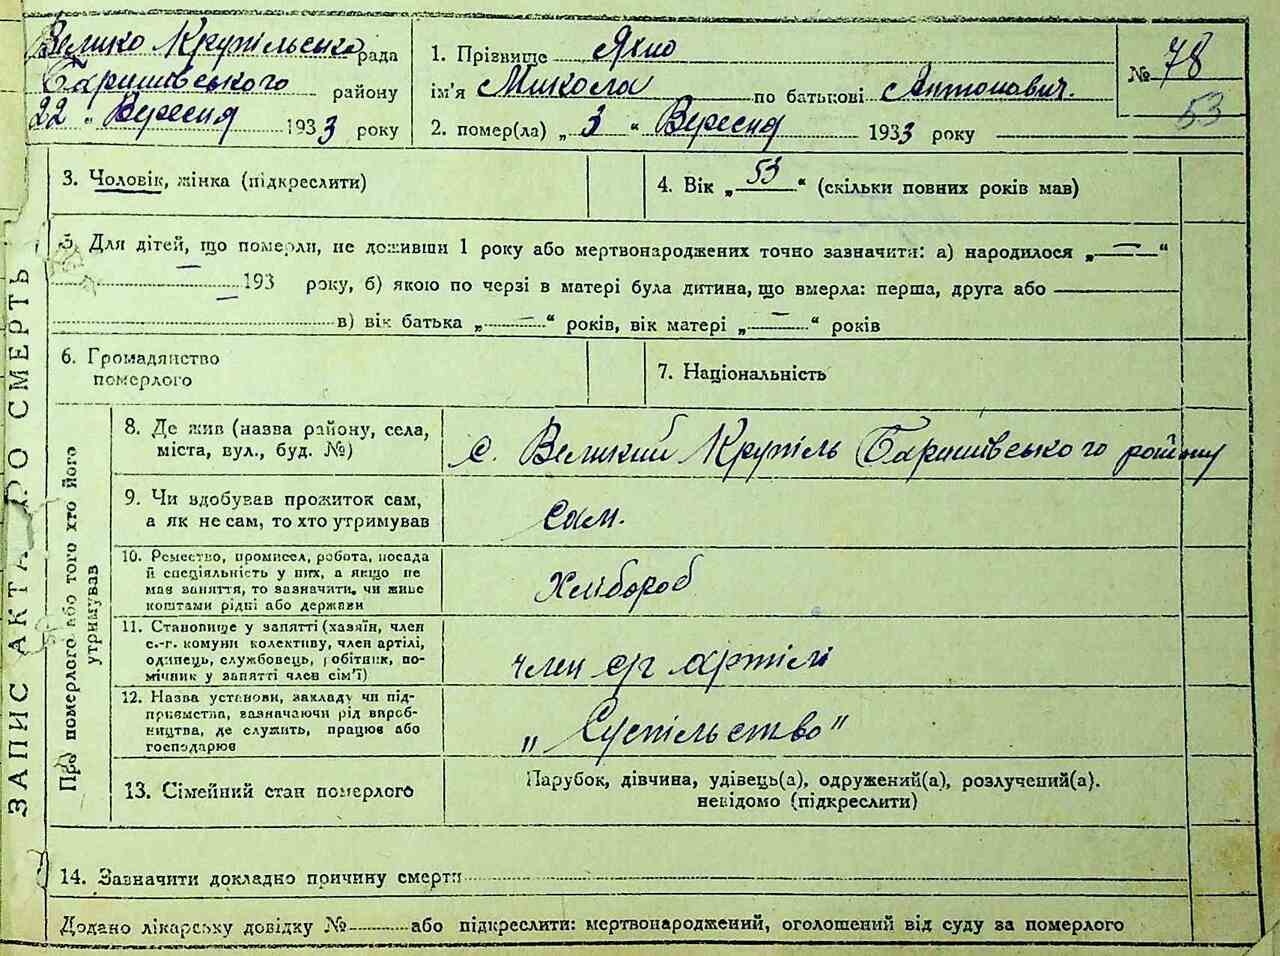 Велико Крупільська рада
Баришівського району
22 „ Вересня 1933 року
1. Прізвище Яхно
ім'я Микола по батькові Антонович.
2. помер(ла) „ 3 “ Вересня 1933 року
№ 78
53
3. Чоловік, жінка (підкреслити)
4. Вік „ 53 “ (скільки повних років мав)
5. Для дітей, що померли, не доживши 1 року або мертвонароджених точно зазначити: а) народилося „ — “
193 року, б) якою по черзі в матері була дитина, що вмерла: перша, друга або
в) вік батька „ — “ років, вік матері „ — “ років
6. Громадянство
померлого
7. Національність
ЗАПИС АКТА ПРО СМЕРТЬ
Про померлого або того хто його
утримував
8. Де жив (назва району, села,
міста, вул., буд. №)
с. Великий Крупіль Баришівського району
9. Чи вдобував прожиток сам,
а як не сам, то хто утримував
сам.
10. Ремество, промисел, робота, посада
й спеціяльність у них, а якщо не
мав заняття, то зазначити, чи живе
коштами рідні або держави
Хлібороб
11. Становище у занятті (хазяїн, член
с.-г. комуни колективу, член артілі,
одинець, службовець, робітник, по-
мічник у занятті член сім'ї)
член с/г артілі
12. Назва установи, закладу чи під-
приємства, зазначаючи рід вироб-
ництва, де служить, працює або
господарює
„ Суспільство"
13. Сімейний стан померлого
Парубок, дівчина, удівець(а), одружений(а), розлучений(а).
невідомо (підкреслити)
14. Зазначити докладно причину смерти
Додано лікарську довідку № або підкреслити: мертвонароджений, оголошений від суду за померлого